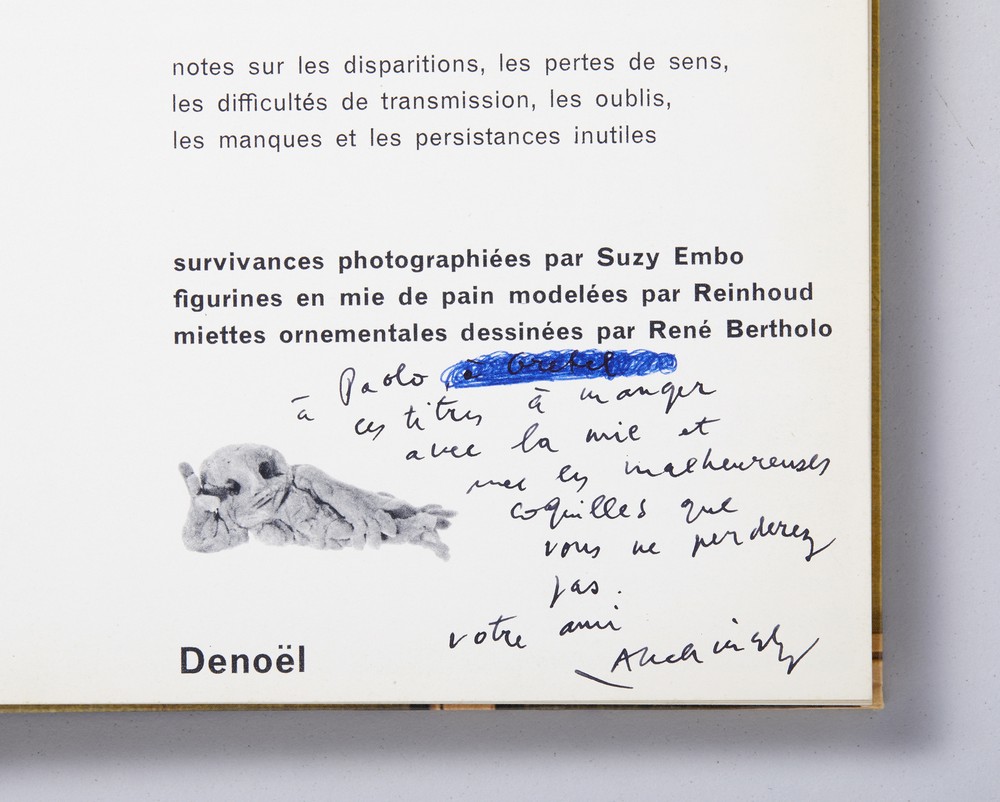 notes sur les disparitions, les pertes de sens,
les difficultés de transmission, les oublis,
les manques et les persistances inutiles
survivances photographiées par Suzy Embo
figurines en mie de pain modelées par Reinhoud
miettes ornementales dessinées par René Bertholo
à Paolo, à Gretel
ces titres à manger
avec la mie et
avec les malheureuses
coquilles que
vous ne perderez
pas.
votre ami
Alechinsky
Denoël